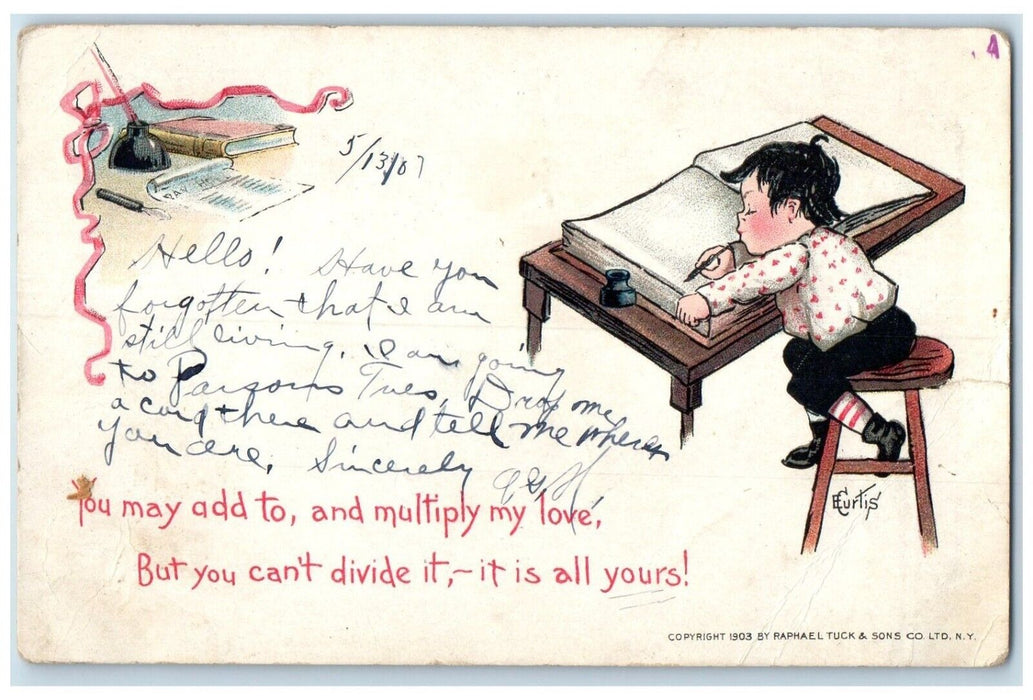 A
DAY
5/13/07
Hello! Have you
forgotten that I am
still living. I am going
to Parsons Tues. Drop me
a card there and tell me where
you are. Sincerely
You may add to, and multiply my love,
But you can't divide it,~it is all yours!
E Curtis
COPYRIGHT 1903 BY RAPHAEL TUCK & SONS CO. LTD, N.Y.